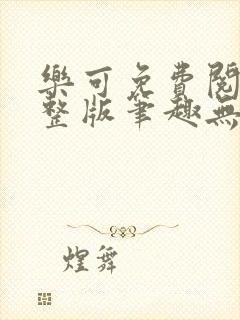 樂可免費閱
整版筆趣無
煌舞